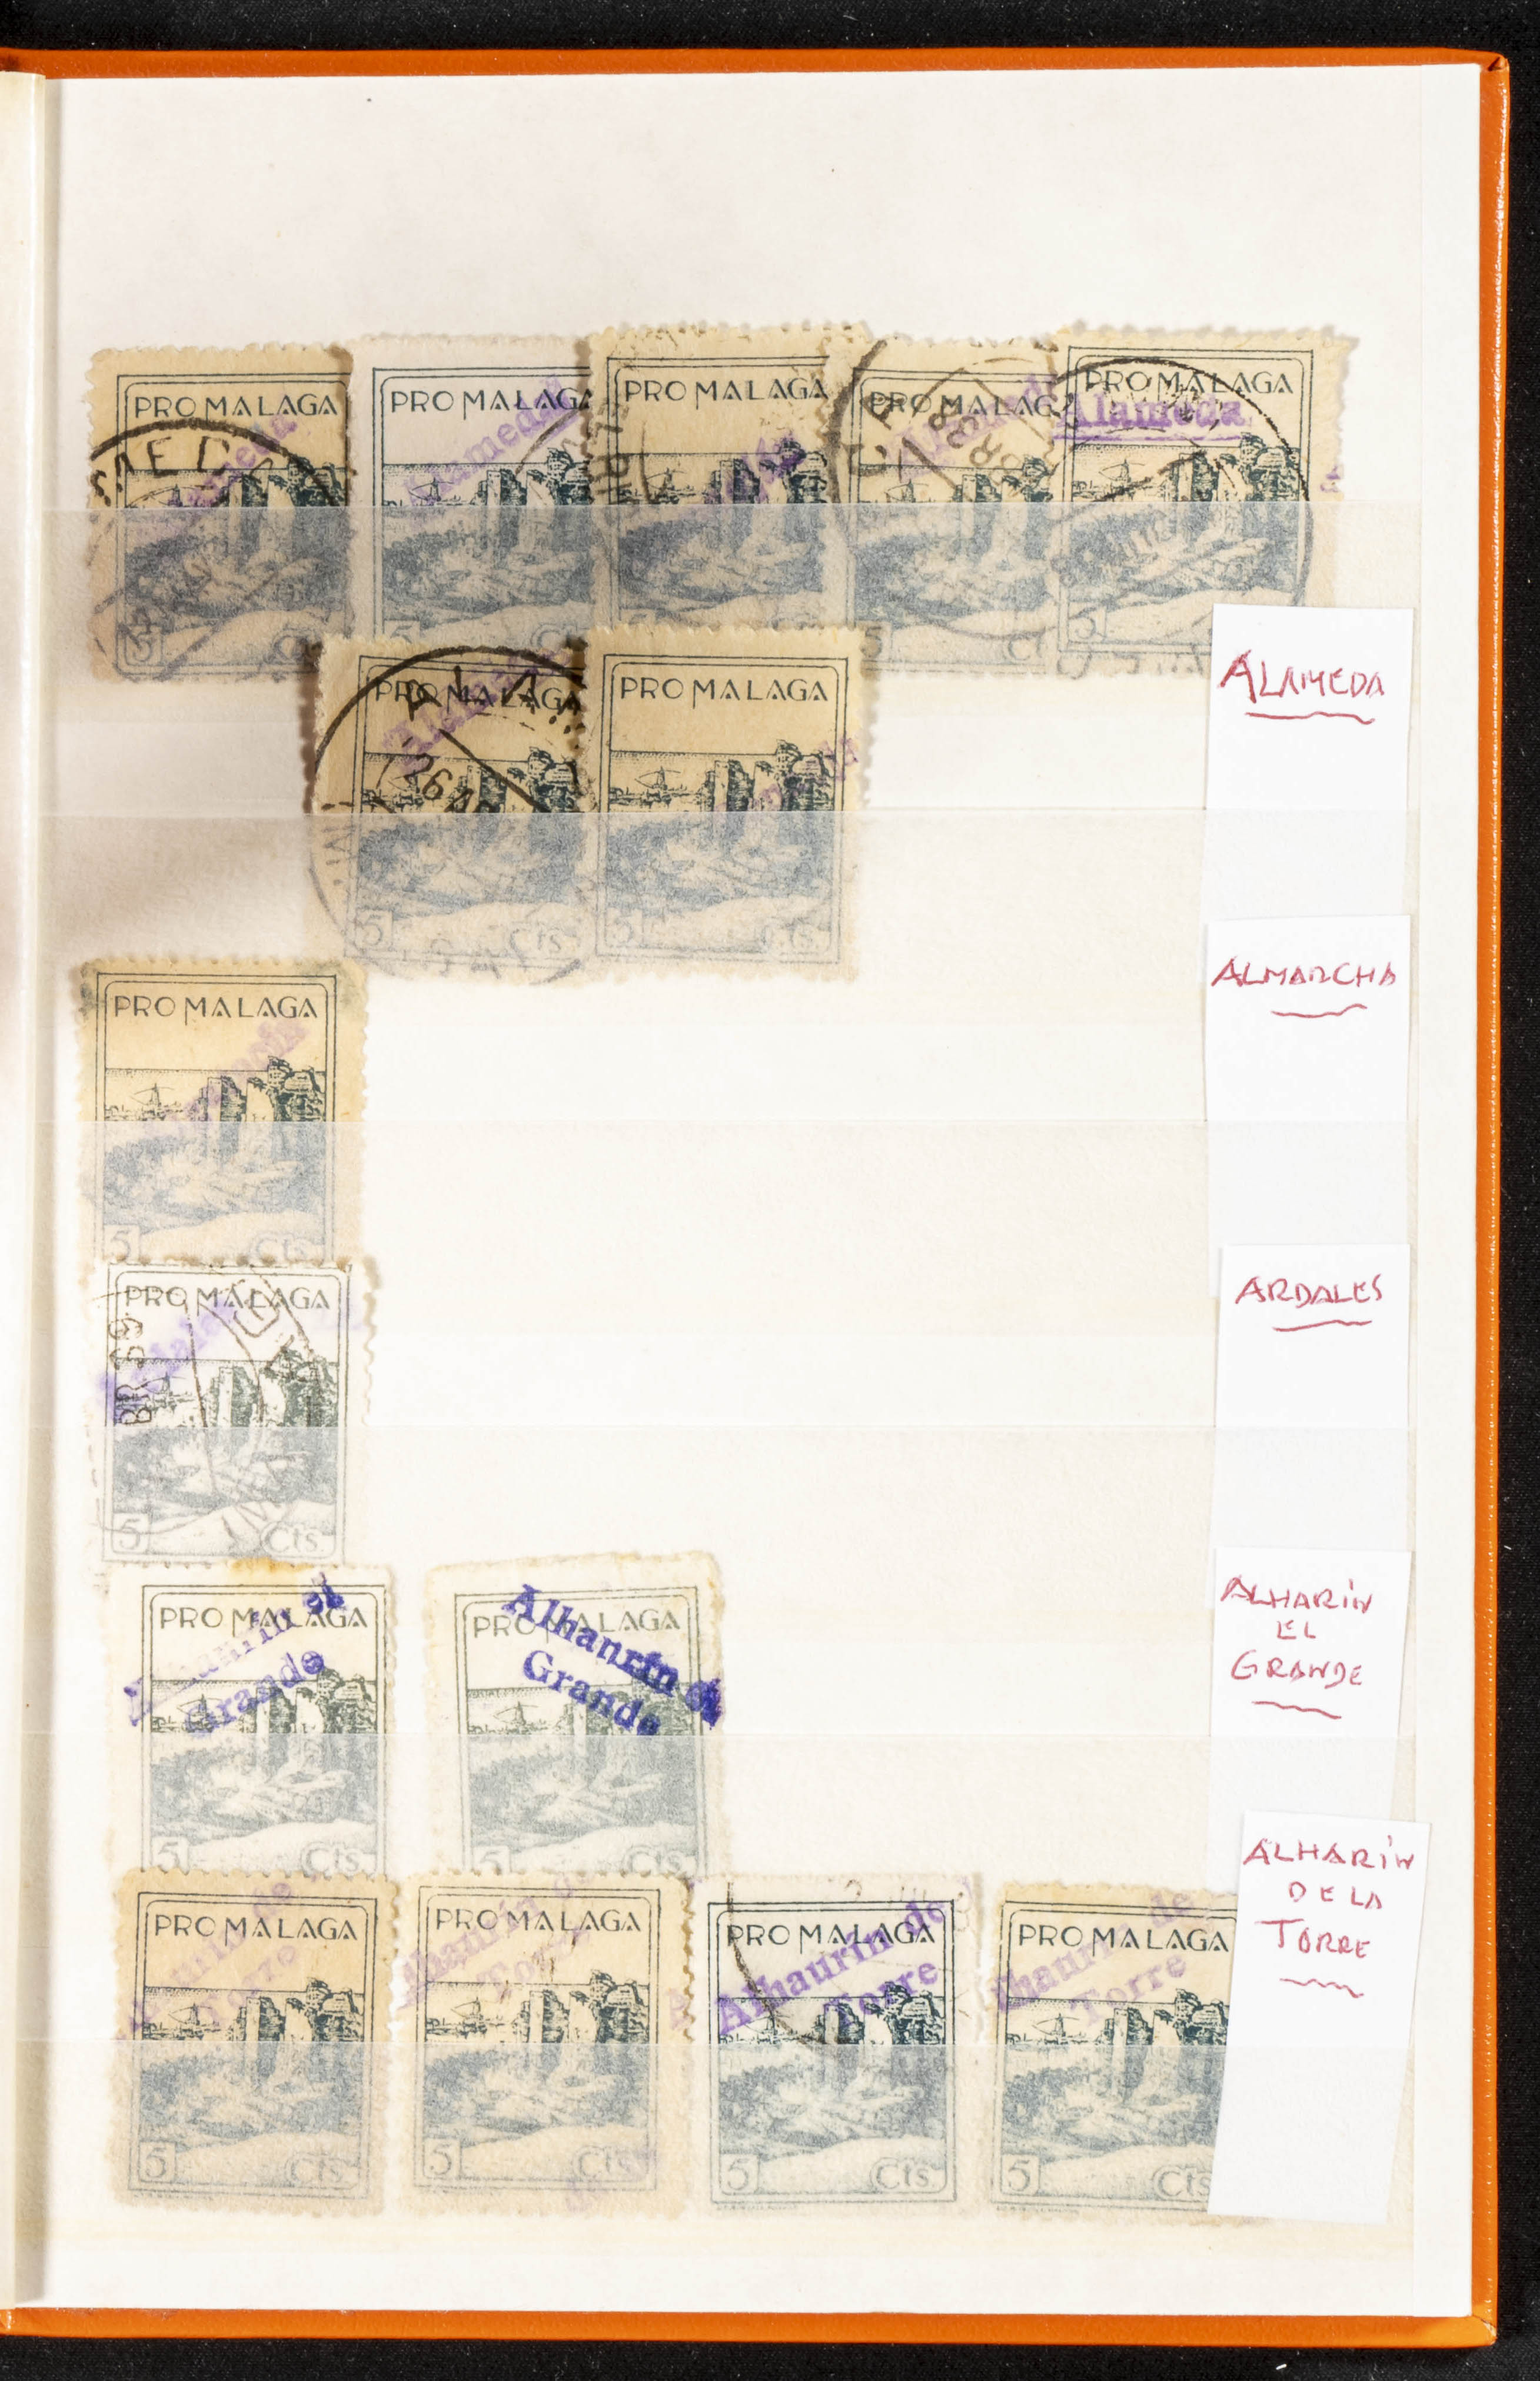 PRO MALAGA
PRO MALAGA
Alameda
PRO MALAGA
PRO MALAG
PRO MALAGA
Alameda
5
5
5
Cts
ALAMEDA
PRO MALAGA
26 A
5
Cts
PRO MALAGA
5
Cts.
ALMARCHA
PRO MALAGA
5
Cts.
ARDALES
PRO MALAGA
39
5
Cts.
ALHARÍN
EL
GRANDE
PRO MALAGA
Alhaurín el
Grande
5
Cts.
PRO MALAGA
Alhaurín el
Grande
5
Cts.
ALHARÍN
DE LA
TORRE
PRO MALAGA
Torre
5
Cts.
PRO MALAGA
Alhaurín de
Torre
5
Cts.
PRO MALAGA
Alhaurín de
Torre
5
Cts.
PRO MALAGA
Alhaurín de
Torre
5
Cts